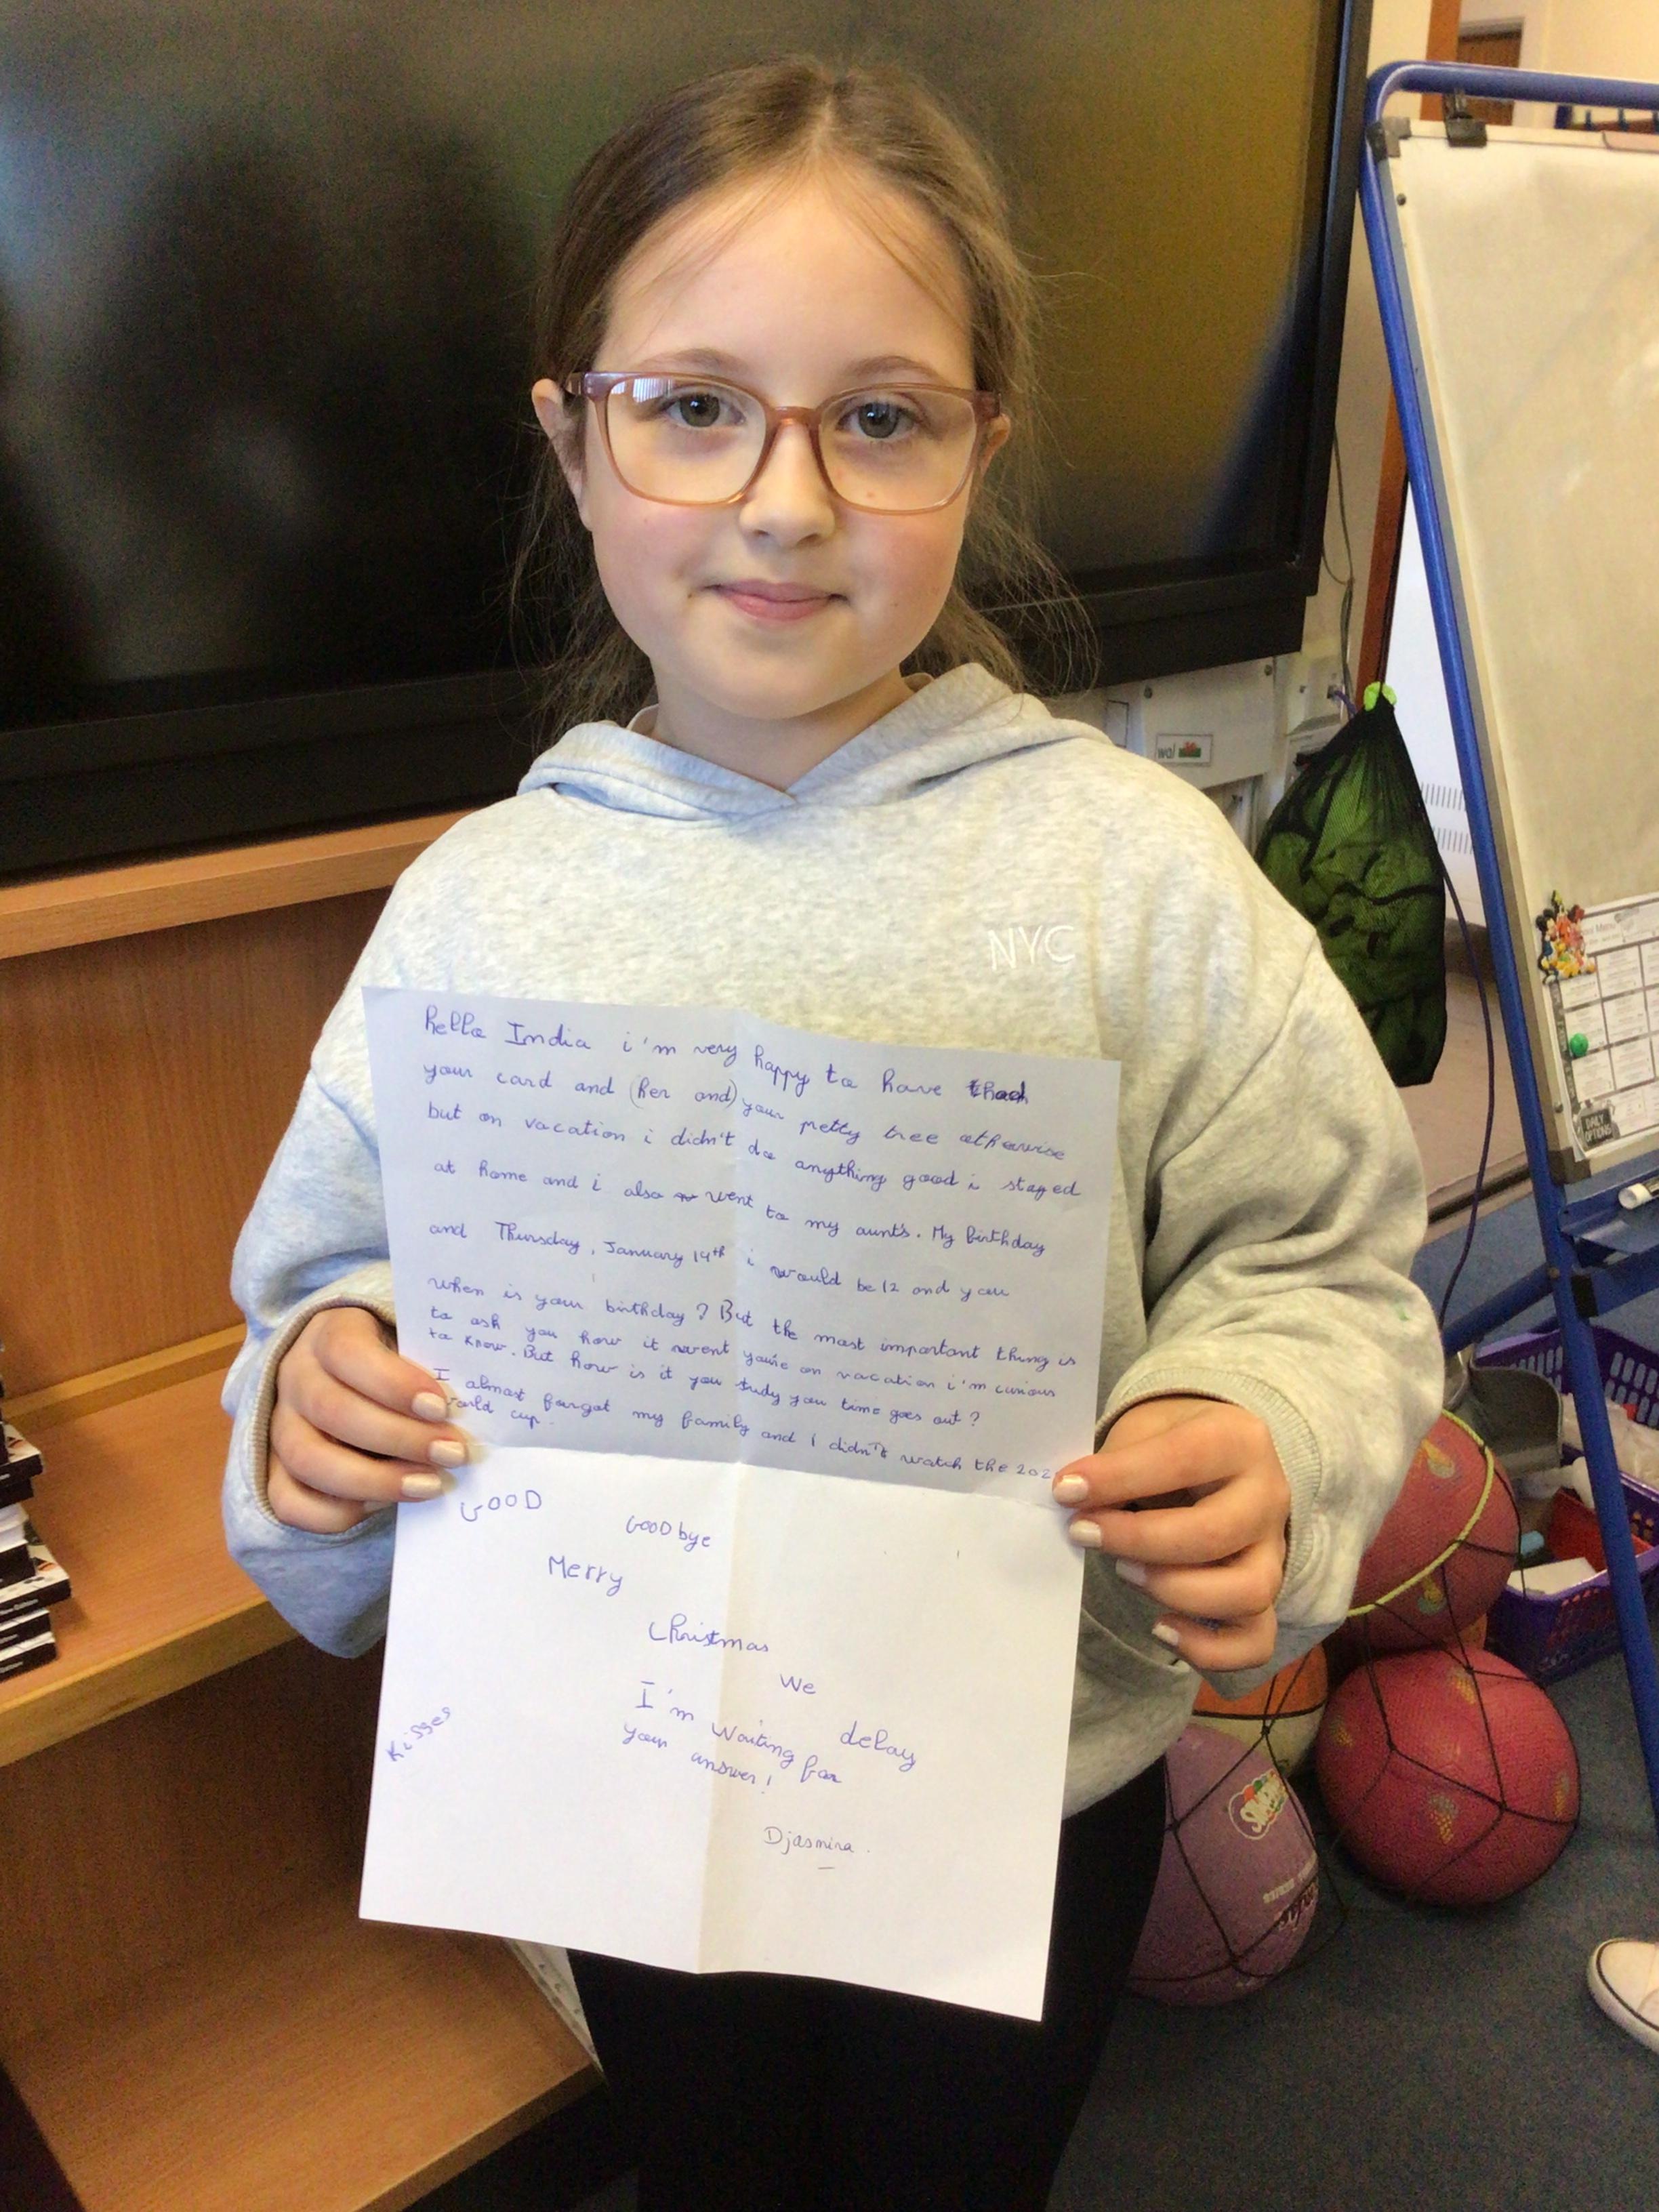 NYC
hello India i'm very happy to have
your card and (her and) your pretty tree otherwise
but on vacation i didn't do anything good i stayed
at home and i also went to my aunt's. My birthday
and Thursday, January 19th i would be 12 and you
when is your birthday? But the most important thing is
to ask you how it went you're on vacation i'm curious
to know. But how is it you tudy you time goes out?
I almost forgot my family and I didn't watch the 202
world cup.
GOOD
GOOD bye
Merry
Christmas
We
delay
I'm waiting for
your answer!
Kisses
Djasmina.
wal
DAILY
OPTIONS